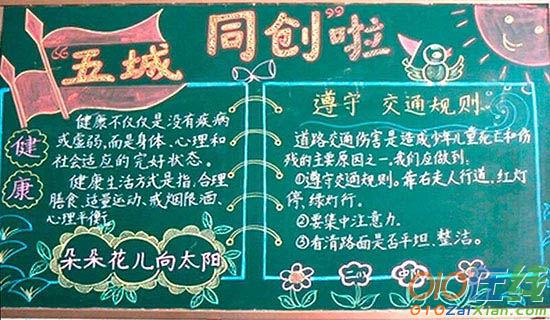 “五城同创”啦
健康
健康不仅仅是没有疾病
或虚弱,而是身体、心理和
社会适应的完好状态。
健康生活方式是指,合理
膳食、适量运动、戒烟限酒、
心理平衡。
朵朵花儿向太阳
遵守 交通规则。
道路交通伤害是造成少年儿童死亡和伤
残的主要原因之一,我们应做到:
①遵守交通规则。靠右走人行道,红灯
停,绿灯行。
②要集中注意力.
③看清路面是否平坦、整洁。
010在线
010zaixian.com